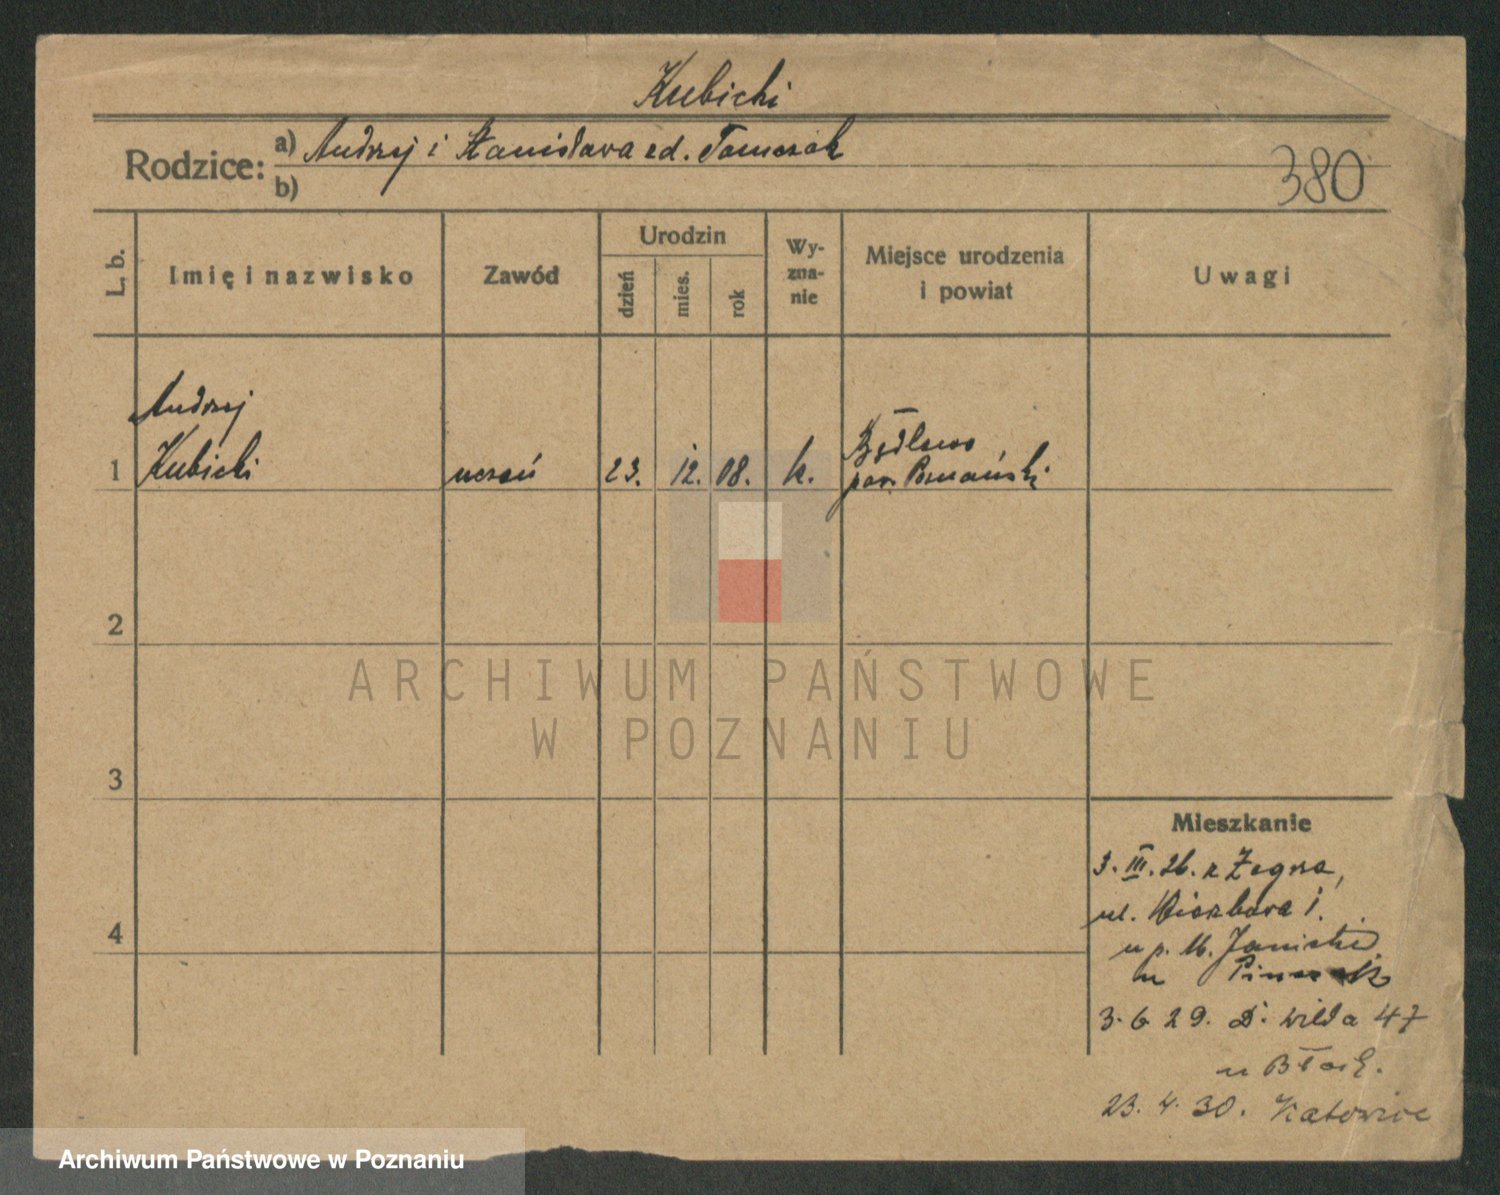 Kubicki
Rodzice: a) Andrzej i Stanisława zd. Tomczak
b)
380
L. b.
Imię i nazwisko
Zawód
Urodzin
dzień
mies.
rok
Wy-
zna-
nie
Miejsce urodzenia
i powiat
Uwagi
Andrzej
1 Kubicki uczeń 23. 12. 08. k.
pow. Poznański
2
3
4
Mieszkanie
3. III. 26. z Zegrza,
ul. 1.
u p. M.
u
3. 6 29. D. Wilda 47
u
23. 4. 30. Katowice
ARCHIWUM PAŃSTWOWE
W POZNANIU
Archiwum Państwowe w Poznaniu